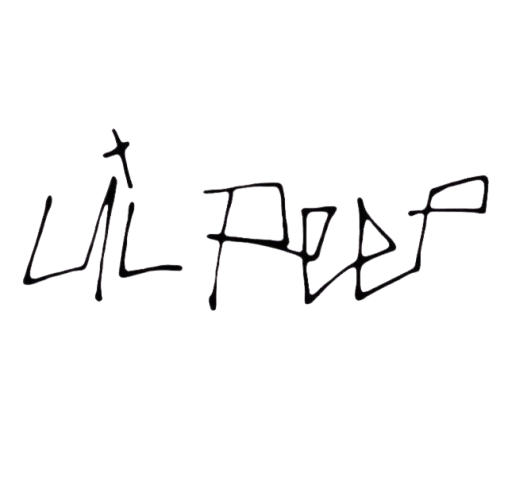 LiL PEEP